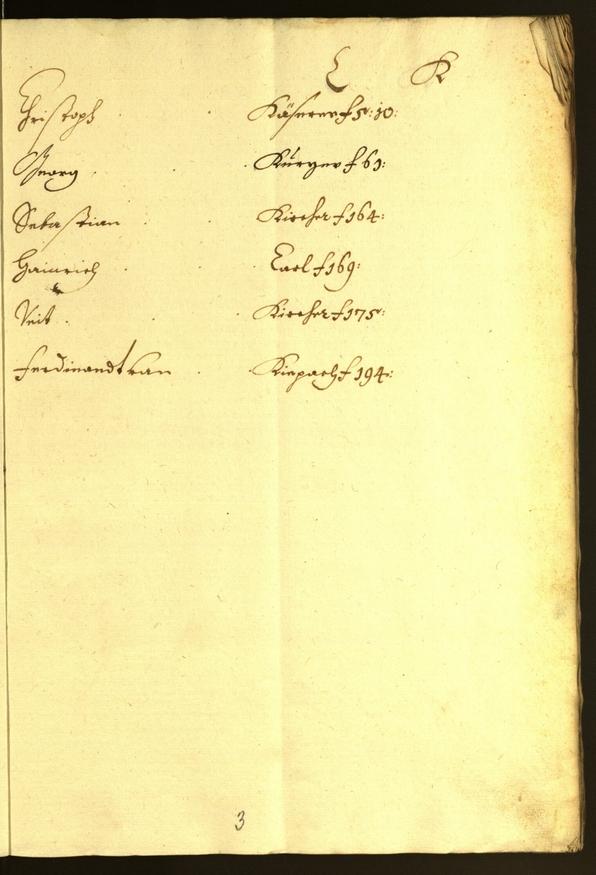 C K
Christoph Käserer f 5: 10:
Georg Kürzer f 61:
Sebastian Kircher f 164:
Hainrich Carl f 169:
Veit Kircher f 175:
Ferdinandt van Kiepach f 194:
3